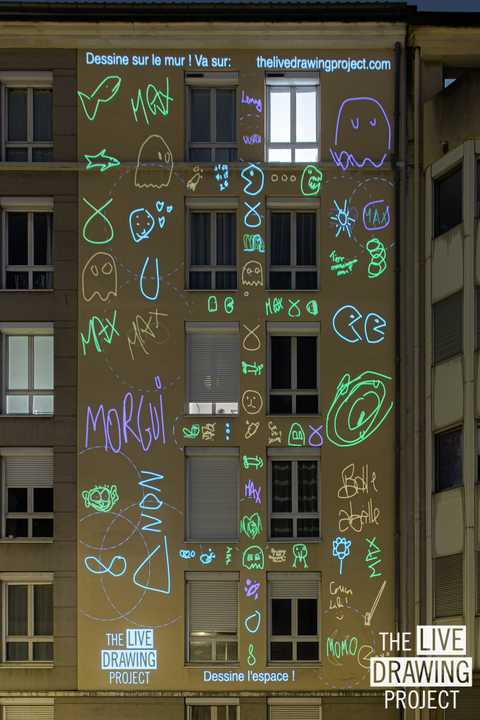 Dessine sur le mur ! Va sur: thelivedrawingproject.com
MAX
MAX
MAX
MAX
MAX
MORGUi
MAX
Belle
abeille
MOMO
THE LIVE
DRAWING
PROJECT
Dessine l'espace !
THE LIVE
DRAWING
PROJECT